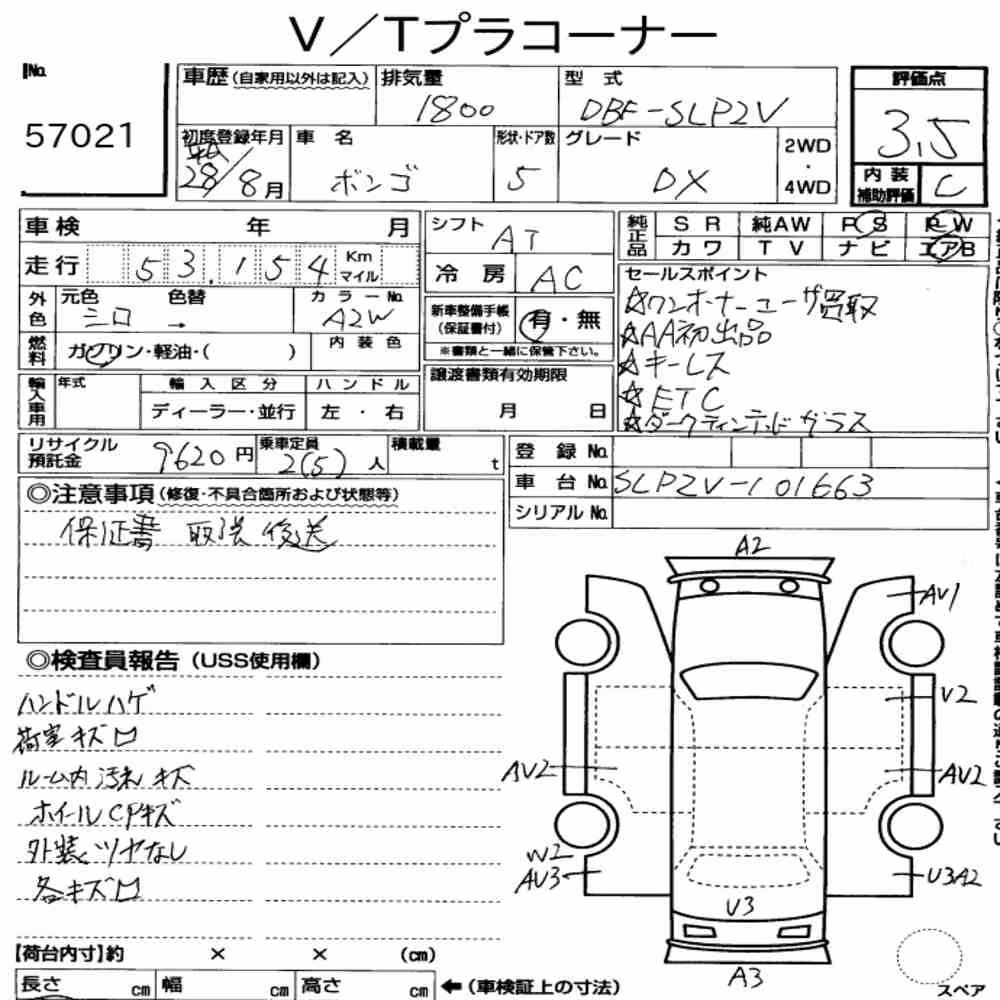 V／Tプラコーナー
No.
57021
車歴(自家用以外は記入)
排気量
1800
型 式
DBF-SLP2V
評価点
3.5
初度登録年月
28/8月
車 名
ボンゴ
形状・ドア数
5
グレード
DX
2WD
・
4WD
内 装
補助評価
C
車検 年 月
走行 53,154 Km
マイル
外色
元色 シロ
色替 →
カラーNo.
A2W
燃料
ガソリン・軽油・( )
内 装 色
輸入車用
年式
輸 入 区 分
ディーラー・並行
ハ ン ド ル
左 ・ 右
シフト AT
冷 房 AC
新車整備手帳
(保証書付)
有・無
※書類と一緒に保管下さい。
譲渡書類有効期限
月 日
純正品
S R 純AW P S P W
カ ワ T V ナ ビ エアB
セールスポイント
☆ワンオーナーユーザ買取
☆AA初出品
☆キーレス
☆ETC
☆ダークティンテッドガラス
リサイクル
預託金
9620円
乗車定員
2(5)人
積載量
t
登 録 No.
車 台 No. SLP2V-101663
シリアル No.
◎注意事項(修復・不具合箇所および状態等)
保証書 取説 後送
◎検査員報告(USS使用欄)
ハンドルハゲ
荷室キズ凹
ルーム内汚れ キズ
ホイールCPキズ
外装ツヤなし
各キズ凹
A2
AV1
V2
AV2
AV2
W2
AV3
U3A2
U3
A3
スペア
【荷台内寸】約 × × (cm)
長さ cm 幅 cm 高さ cm
←(車検証上の寸法)